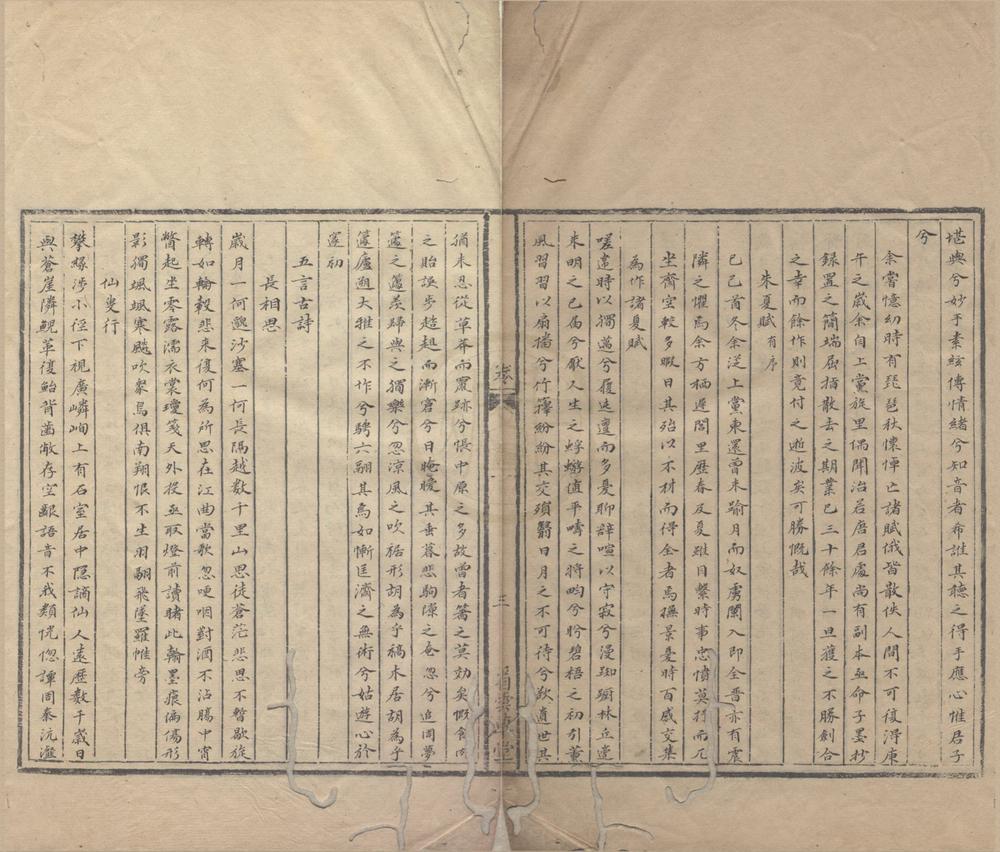 堪與兮妙手素絃傳情緒兮知音者希誰其聽之得手應心惟君子
兮
余嘗憶幼時有琵琶秋懷悼亡諸賦俄皆散佚人間不可復得庚
午之歲余自上黨旋里偶開治若詹君處尚有副本亟命子墨抄
錄置之簡端屈指散去之期業已三十餘年一旦獲之不勝劍合
之幸而餘作則竟付之逝波矣可勝慨哉
朱夏賦有序
己巳首冬余從上黨東還曾未踰月而奴虜闌入即全晋亦有震
隣之懼焉余方栖遲閭里歷春及夏雖目繫時事忠憤莫抒而兀
坐齋空較多暇日其殆以不材而得全者焉撫景憂時百感交集
為作諸夏賦
嗟違時以獨邁兮履迍邅而多憂聊辭喧以守寂兮漫踟躕林丘堂
朱明之已屆兮厭人生之蜉蝣值平疇之將昀兮盻碧梧之初引薰
風習習以扇揚兮竹籜紛紛其交殞翳日月之不可待兮歎遺世其
猶未忍從草莽而匿跡兮悵中原之多故曾者籌之莫効矣慨食肉
之貽誤步趦趄而漸窘兮日晻曖其垂暮悲駒隙之奄忽兮追同夢
蘧之蘧羌歸與之獨樂兮忽涼風之吹裾形胡為乎稿木居胡為乎
蘧廬遡大雅之不作兮騁六翮其焉如慚匡濟之無術兮姑遊心於
邃初
五言古詩
長相思
歲月一何邈沙塞一何長隔越數千里山思徒蒼茫悲思不暫歇旋
轉如輪轂悲來復何為所思在江曲當歌忽哽咽對酒不沾腸中宵
瞥起坐零露濡衣裳瓊箋天外投亟取燈前讀睹此翰墨痕偏傷形
影獨颯颯寒飈吹衆鳥俱南翔恨不生羽翮飛墜羅帷旁
仙叟行
攀緣涉小徑下視廣嶙峋上有石室居中隱謫仙人遠歷數千歲日
與蒼崖隣鯢革復鮐背齒敝存空齦語音不我類恍惚譚周秦沆瀣
卷一
三